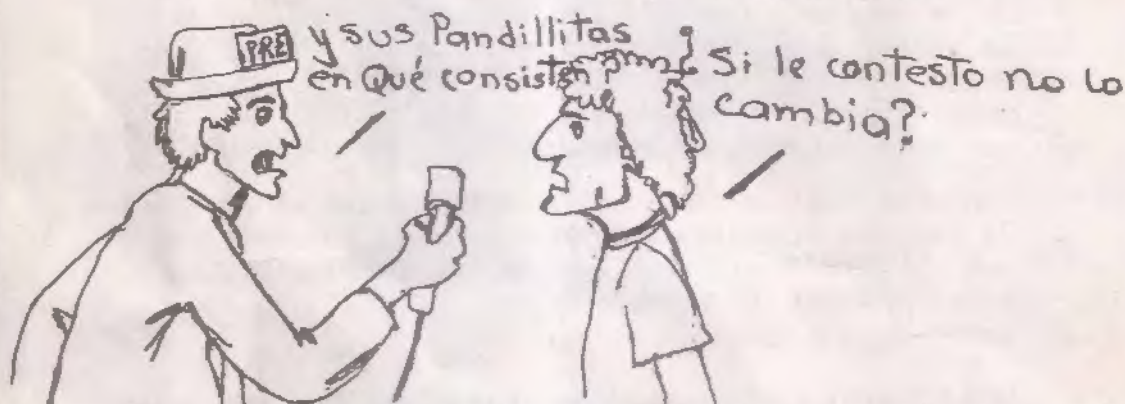 PRE
y sus Pandillitas
en Qué consisten?
¿Si le contesto no lo
cambia?